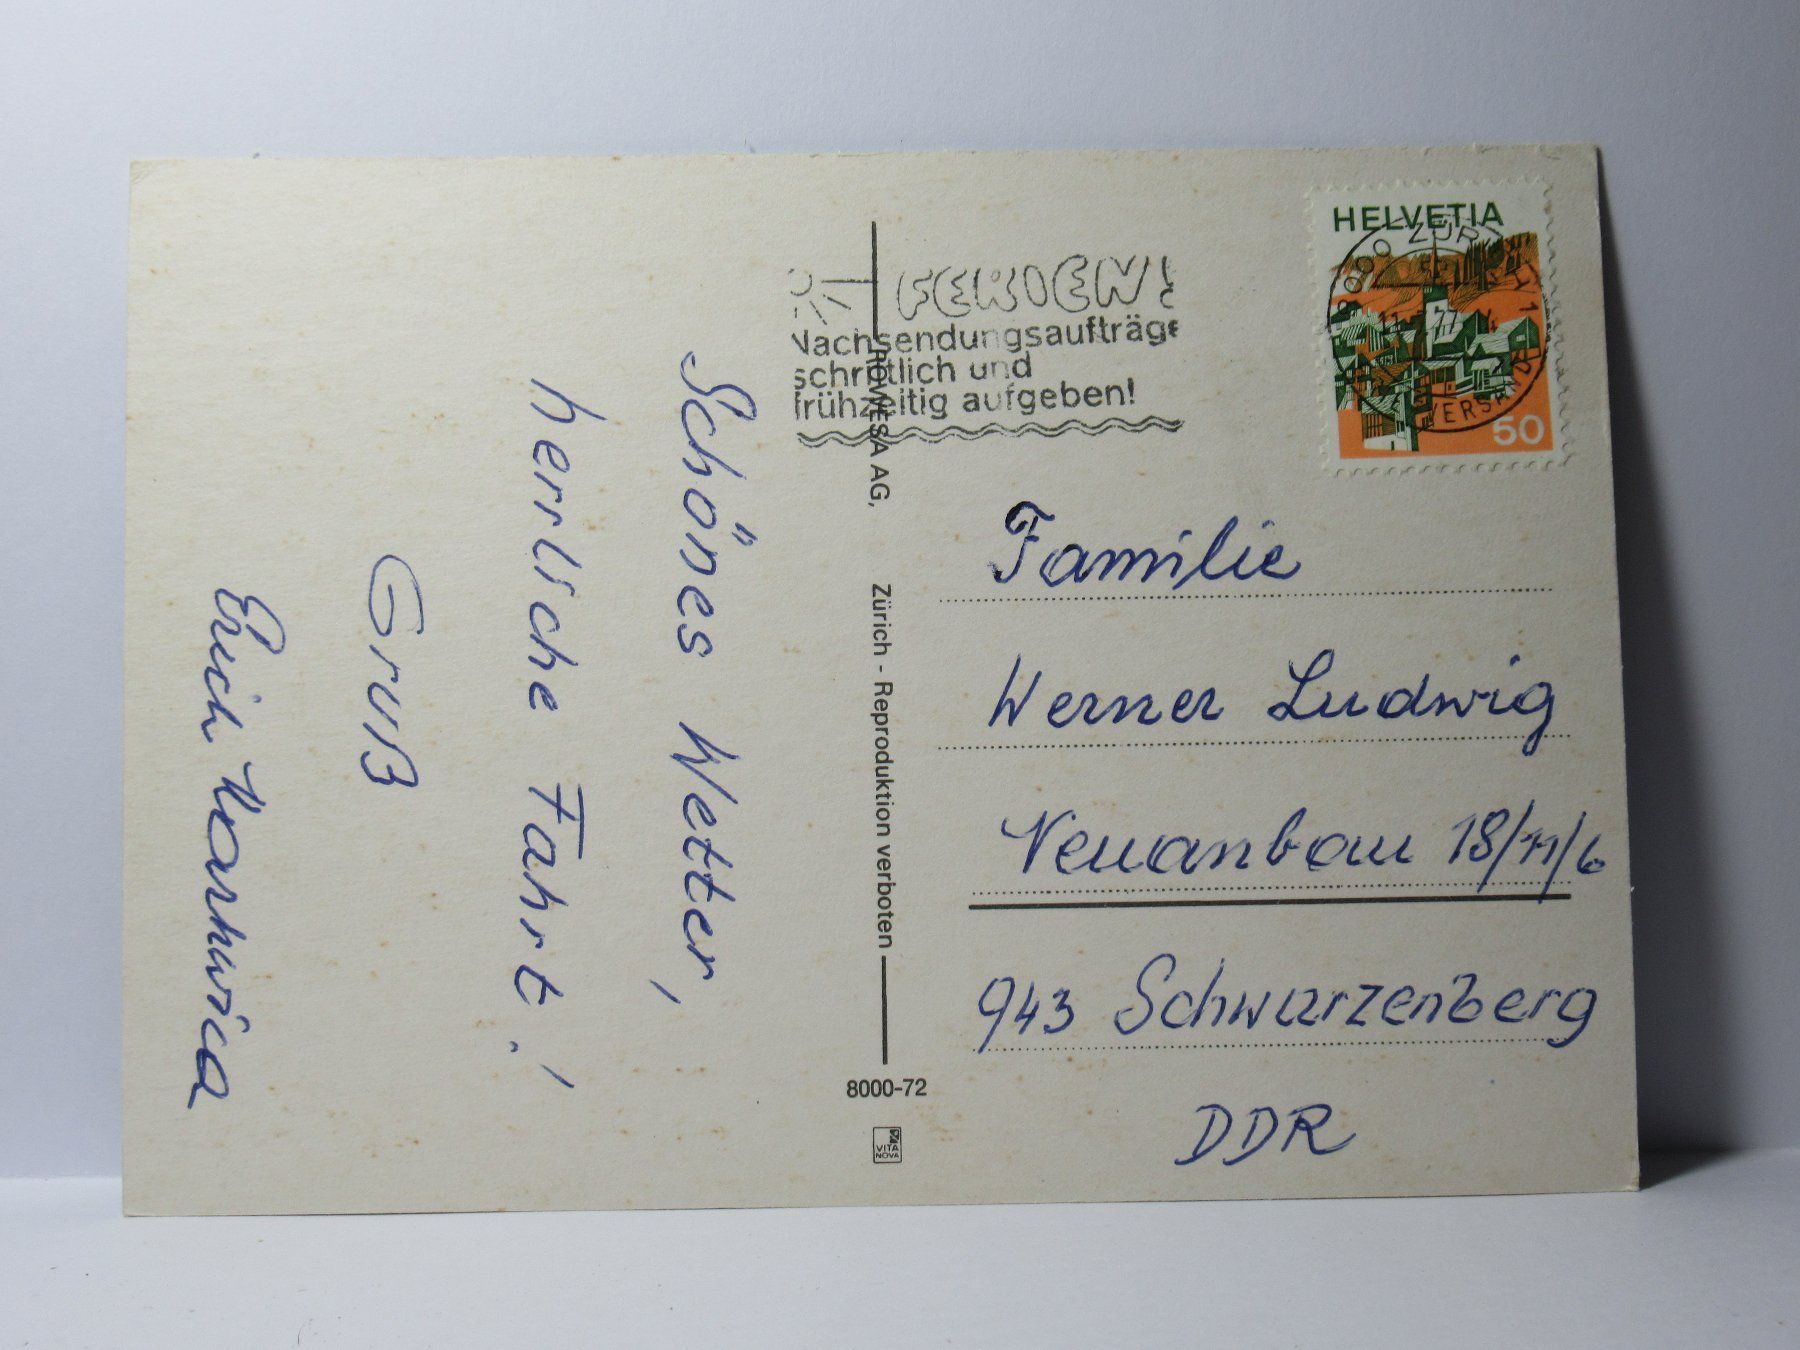 Schönes Wetter,
herrliche Fahrt!
Gruß
Erich
FERIEN!
Nachsendungsaufträge
schriftlich und
frühzeitig aufgeben!
ROWESA AG, Zürich - Reproduktion verboten
8000-72
VITA
NOVA
HELVETIA
8000 ZÜRICH 1
VERSAND
50
Familie
Werner Ludwig
Neuanbau 18/11/6
943 Schwarzenberg
DDR